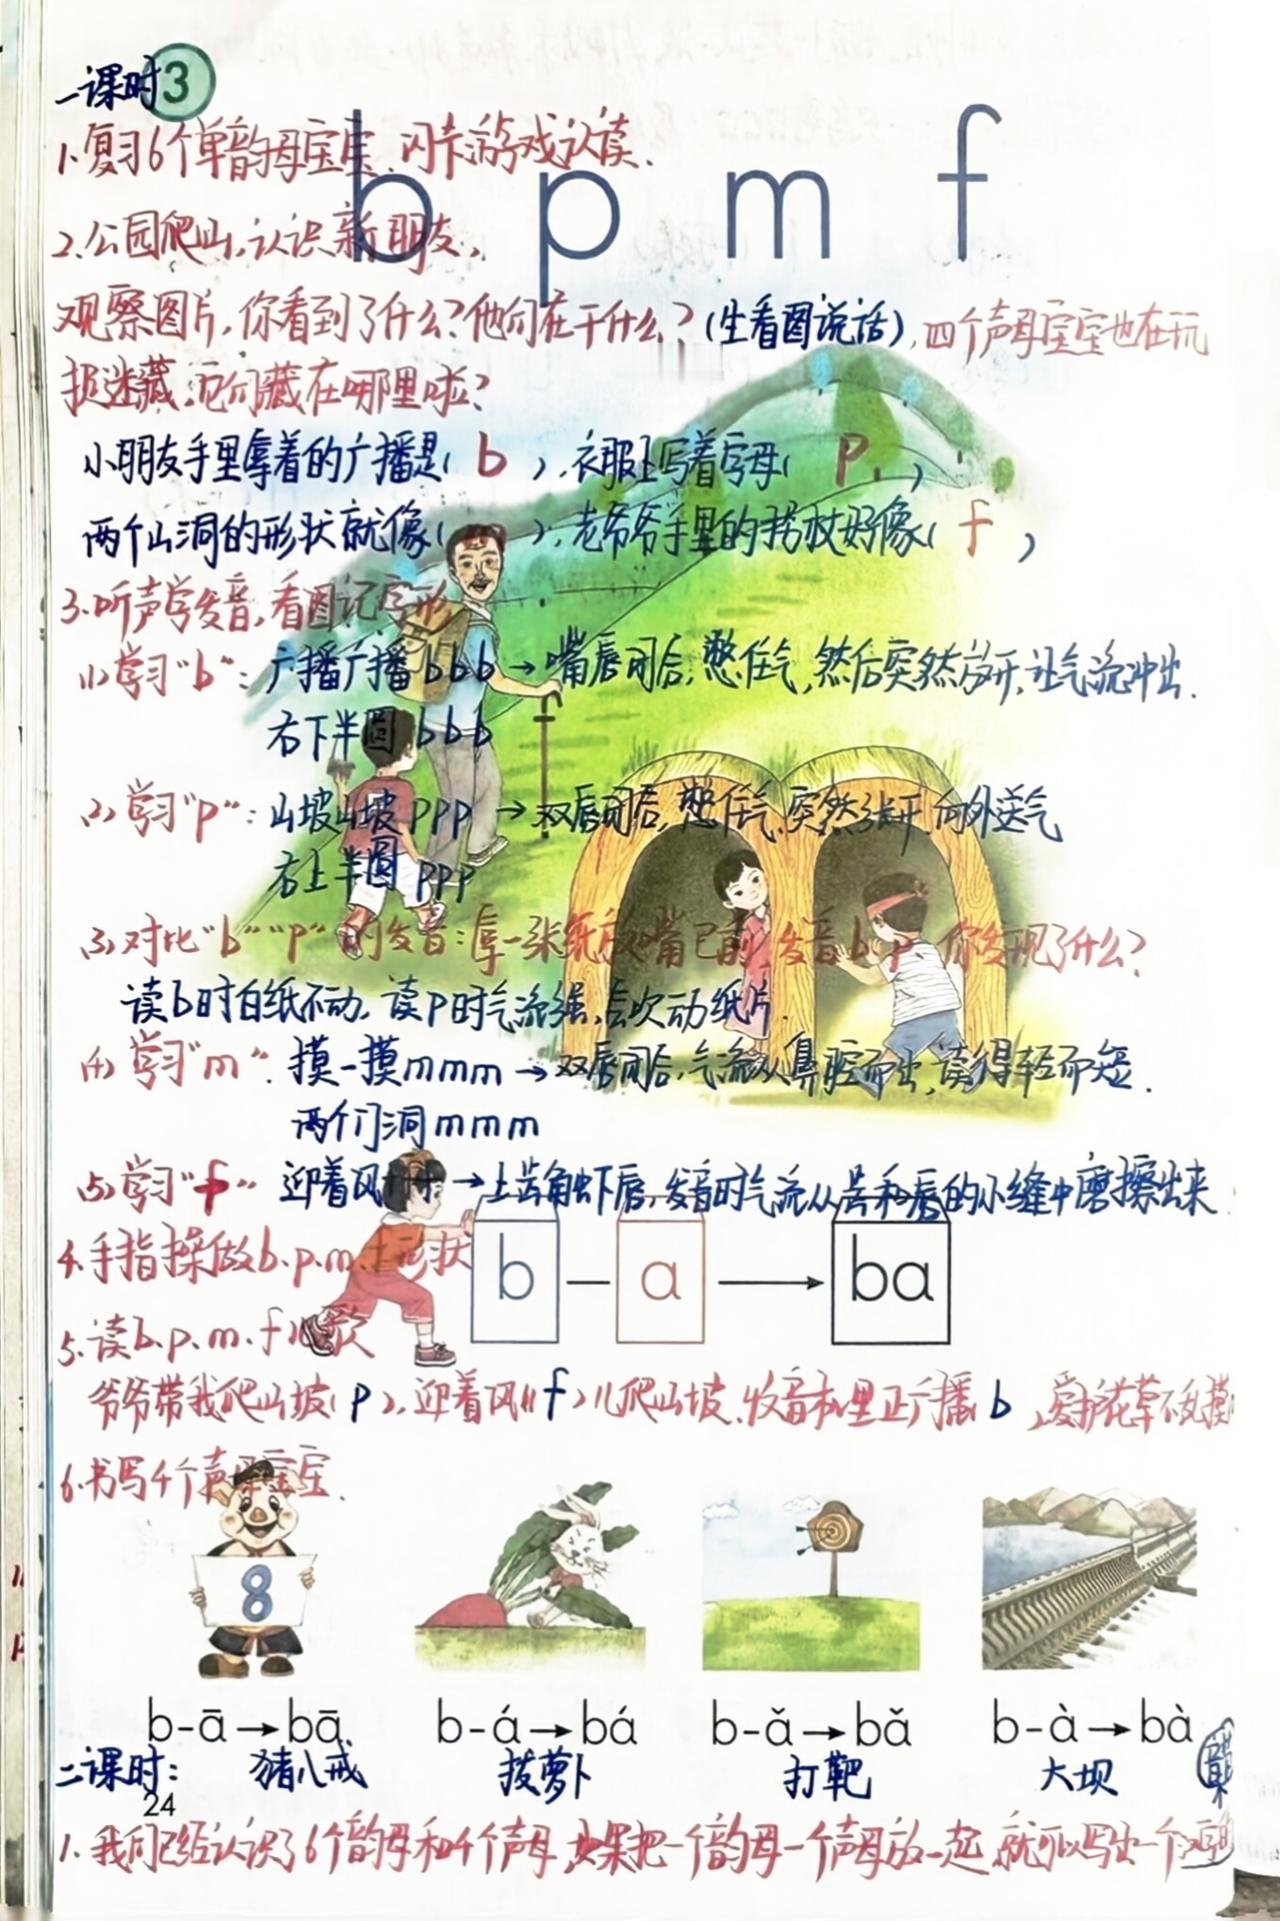 一课时 3
b p m f
1.复习6个单韵母宝宝,闪卡游戏认读.
2.公园爬山,认识新朋友.
观察图片,你看到了什么?他们在干什么?(生看图说话),四个声母宝宝也在玩
捉迷藏,它们藏在哪里啦?
小朋友手里拿着的广播是( b ),衣服上写着字母( p )
两个山洞的形状就像( ),老爷爷手里的拐杖好像( f )
3.听声学发音,看图记字形
(1)学习"b":广播广播bbb→嘴唇闭合,憋住气,然后突然放开,让气流冲出.
右下半圆bbb
(2)学习"p":山坡山坡ppp→双唇闭合,憋住气,突然张开,向外送气
右上半圆ppp
(3)对比"b""p"的发音:拿一张纸放嘴巴前,发音b p,你发现了什么?
读b时白纸不动,读p时气流强,会吹动纸片.
(4)学习"m":摸一摸mmm→双唇闭合,气流从鼻腔而出,读得轻而短.
两个门洞mmm
(5)学习"f" 迎着风 →上齿触下唇,发音时气流从齿和唇的小缝中摩擦出来
4.手指操做b.p.m.f形状
b — a → ba
5.读b.p.m.f儿歌
爷爷带我爬山坡(p),迎着风(f)儿爬山坡,收音机里正广播 b ,爱护花草不乱摸
6.书写4个声母宝宝.
8
b-ā→bā b-á→bá b-ǎ→bǎ b-à→bà
二课时: 猪八戒 拔萝卜 打靶 大坝
24
1.我们已经认识了6个韵母和4个声母,如果把一个韵母一个声母放一起,就可以写出一个